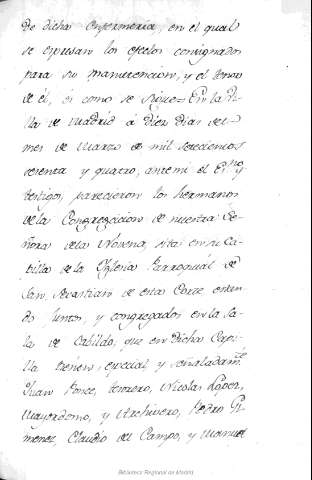 de dicha Enfermeria, en el qual
se expresan los efectos consignados
para su manutencion, y el tenor
de él, es como se sigue = En la Vi-
lla de Madrid á Diez dias del
mes de Marzo de mil setecientos
setenta y quatro, ante mi el Essno
testigos, parecieron los hermanos
de la Congregacion de nuestra Se-
ñora de la Novena, sita en su Ca-
pilla de la Yglesia Parroquial de
San Sevastian de esta Corte estan-
do juntos, y congregados en la Sa-
la de Cabildo, que en dicha Cape-
lla tienen, especial y señaladamte
Juan Ponce, thesorero, Nicolas Lopez,
Mayordomo, y Archivero, Pedro Gi-
menez, Claudio del Campo, y Manuel
Biblioteca Regional de Madrid